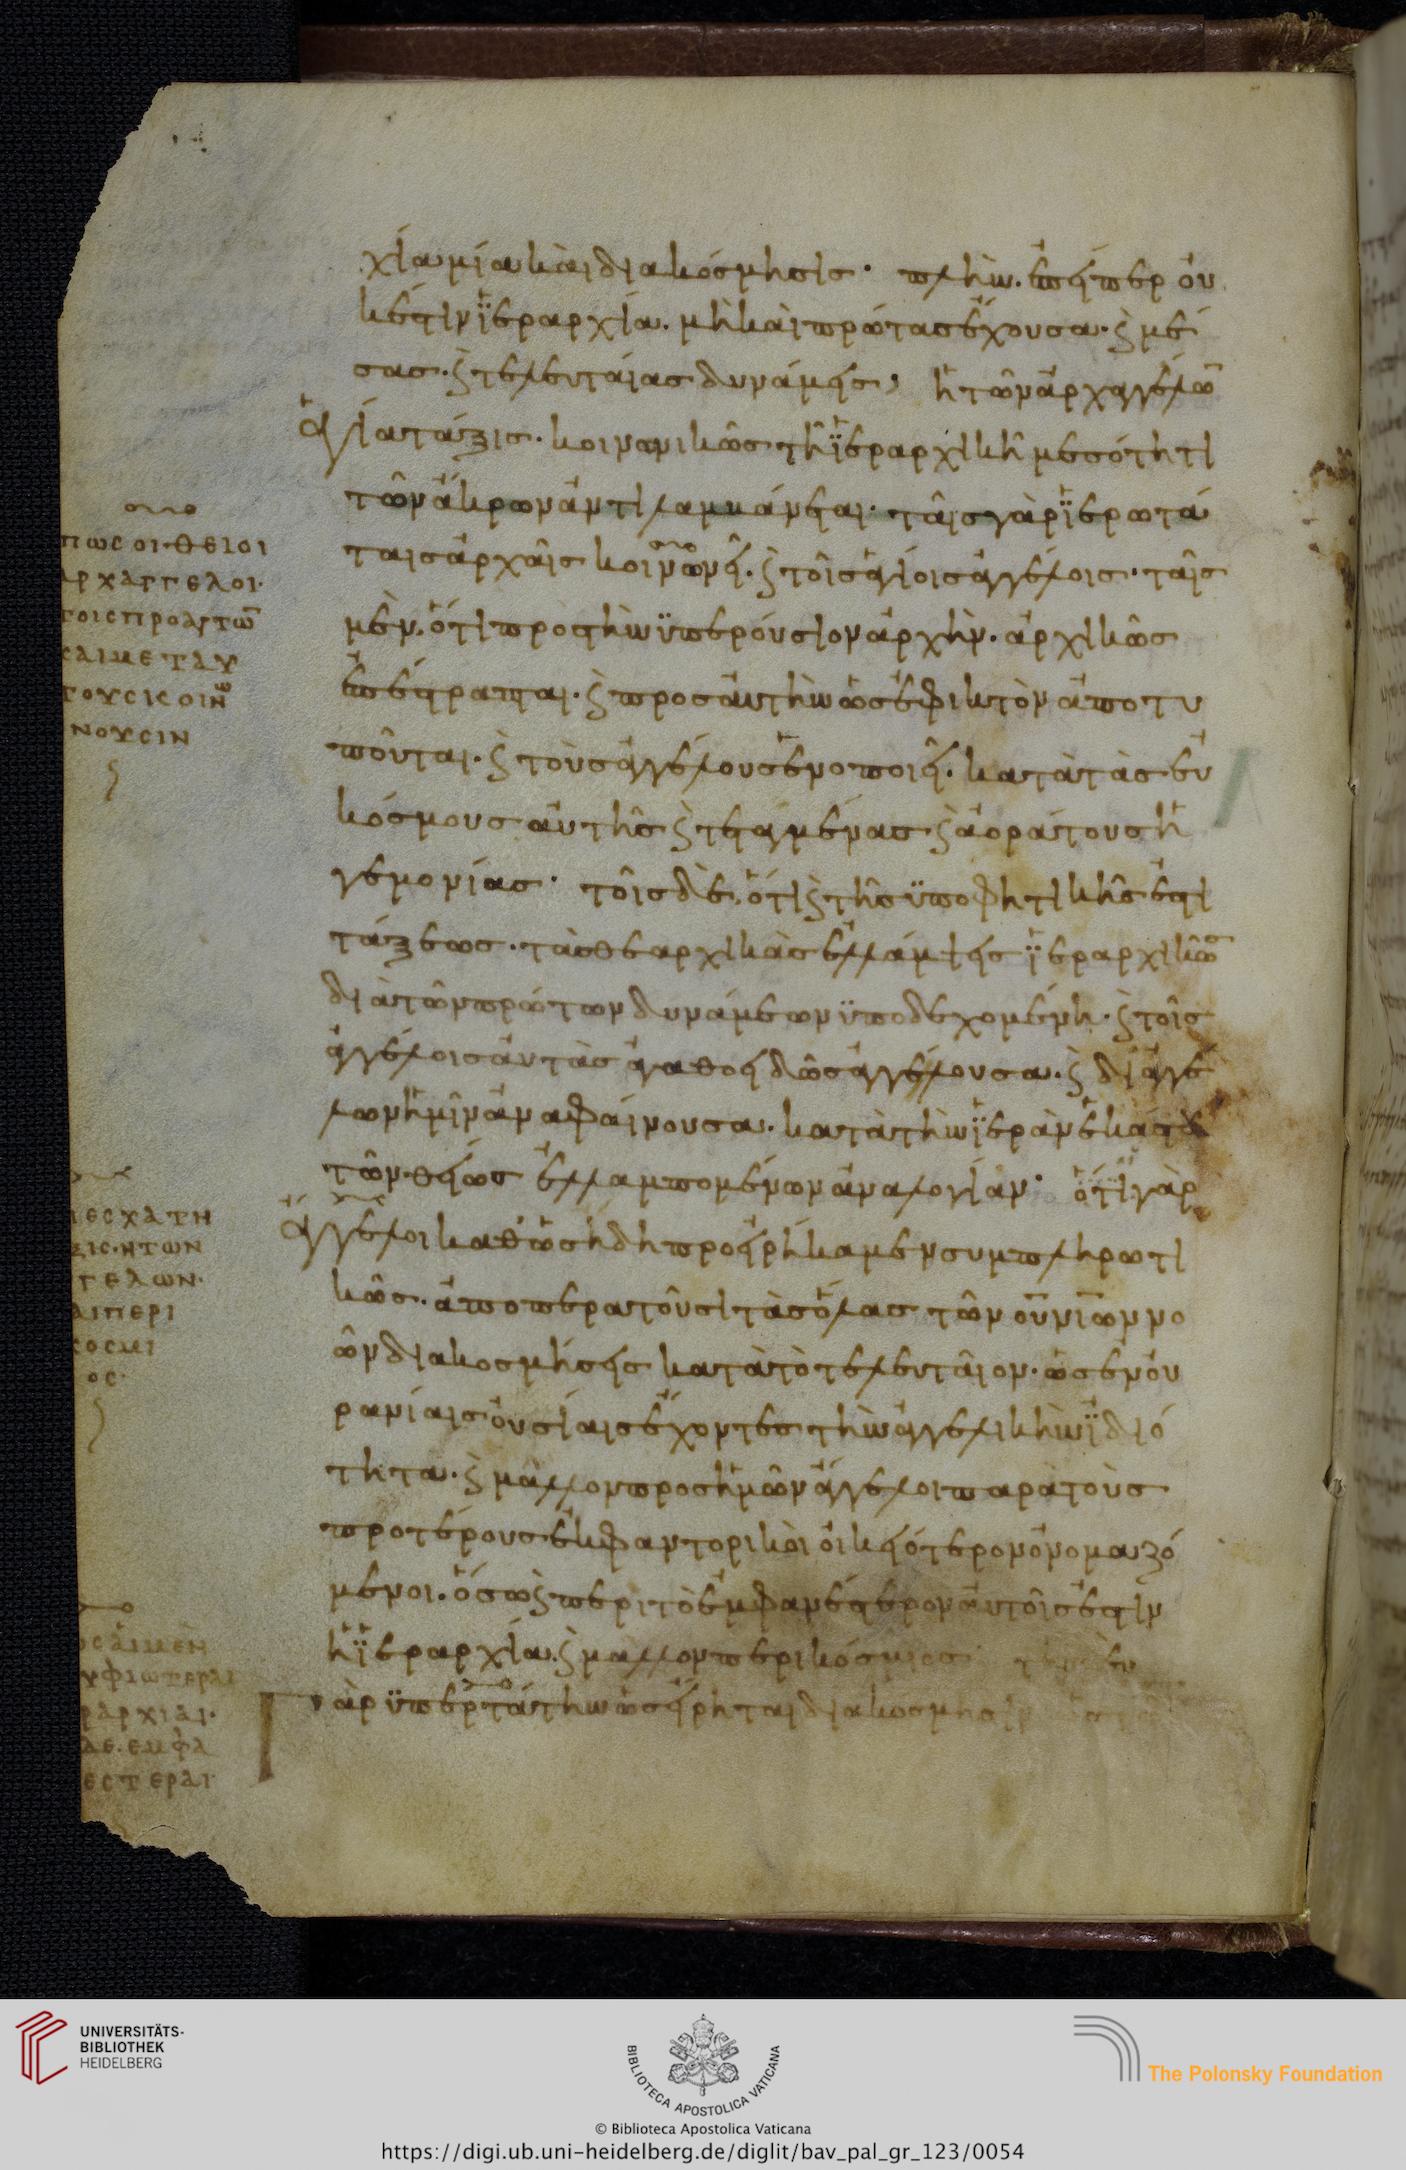 χία μία καὶ διακόσμησις· πλὴν. ἐπείπερ οὐ
κέστιν ἱεραρχία. μὴ καὶ πρώτας ἔχουσα· ϗ μέ
σας· ϗ τελευταίας δυνάμεις, ἡ τῶν ἀρχαγγέλω̄
ἁγία τάξις. κοινωνικῶς τῆ ἱεραρχικῆ μεσότητι
τῶν ἄκρων ἀντιλαμβάνεται· ταῖς γὰρ ἱερωτά
ταις ἀρχαῖς κοινωνεῖ. ϗ τοῖς ἁγίοις ἀγγέλοις· ταῖς
μὲν. ὅτι προς τὴν ὑπερούσιον ἀρχὴν. ἀρχικῶς
ἐπέστραπται· ϗ προς αὐτὴν ὡς ἐφικτὸν ἀποτυ
ποῦται· ϗ τοὺς ἀγγέλους ἑνοποιεῖ. κατὰ τὰς εὐ
κόσμους αὐτῆς ϗ τεταγμένας ϗ ἀοράτους ἡ
γεμονίας· τοῖς δὲ. ὅτι ϗ τῆς ὑποφητικῆς ἐστι
τάξεως· τὰς θεαρχικὰς ἐλλάμψεις ἱεραρχικῶς
διὰ τῶν πρώτων δυνάμεων ὑποδεχομένη· ϗ τοῖς
ἀγγέλοις αὐτὰς ἀγαθοειδῶς ἀγγέλλουσα. ϗ δι' ἀγγέ
λων ἡμῖν ἀναφαίνουσα. κατὰ τὴν ἱερὰν ἑκάστου
τῶν θείως ἐλλαμπομένων ἀναλογίαν· ὅτι γὰρ
ἄγγελοι καθ' ὡς ἤδη προείρήκαμεν συμπληρωτι
κῶς. ἀποπερατοῦσι τὰς ὅλας τῶν οὐνίων νο
ῶν διακοσμήσεις κατὰ τὸ τελευταῖον. ὡς ἐν οὐ
ρανίαις οὐσίαις ἔχοντες τὴν ἀγγελικὴν ἰδιό
τητα. ϗ μᾶλλον προς ἡμῶν ἄγγελοι παρὰ τοὺς
προτέρους ἐκφαντορικοὶ οἰκειότερον ὀνομαζό
μενοι. ὅσω ϗ περὶ τὸ ἐμφανέστερον αὐτοῖς ἐστὶν
ἡ ἱεραρχία. ϗ μᾶλλον περικόσμιος
γὰρ ὑπερτάτην ὡς εἴρηται διακόσμησιν
πως οι θειοι
αρχαγγελοι·
τοις προ αυτω̄
και μετ αυ
τους κοινω
νουσιν
εσχατη
ξις· η των
γελων·
αι περι
κοσμι
ος·
ος αἱ μὲν
υψιωτεραι
ραρχιαι·
δε. εμφα
εστεραι
UNIVERSITÄTS-
BIBLIOTHEK
HEIDELBERG
BIBLIOTECA APOSTOLICA VATICANA
The Polonsky Foundation
© Biblioteca Apostolica Vaticana
https://digi.ub.uni-heidelberg.de/diglit/bav_pal_gr_123/0054